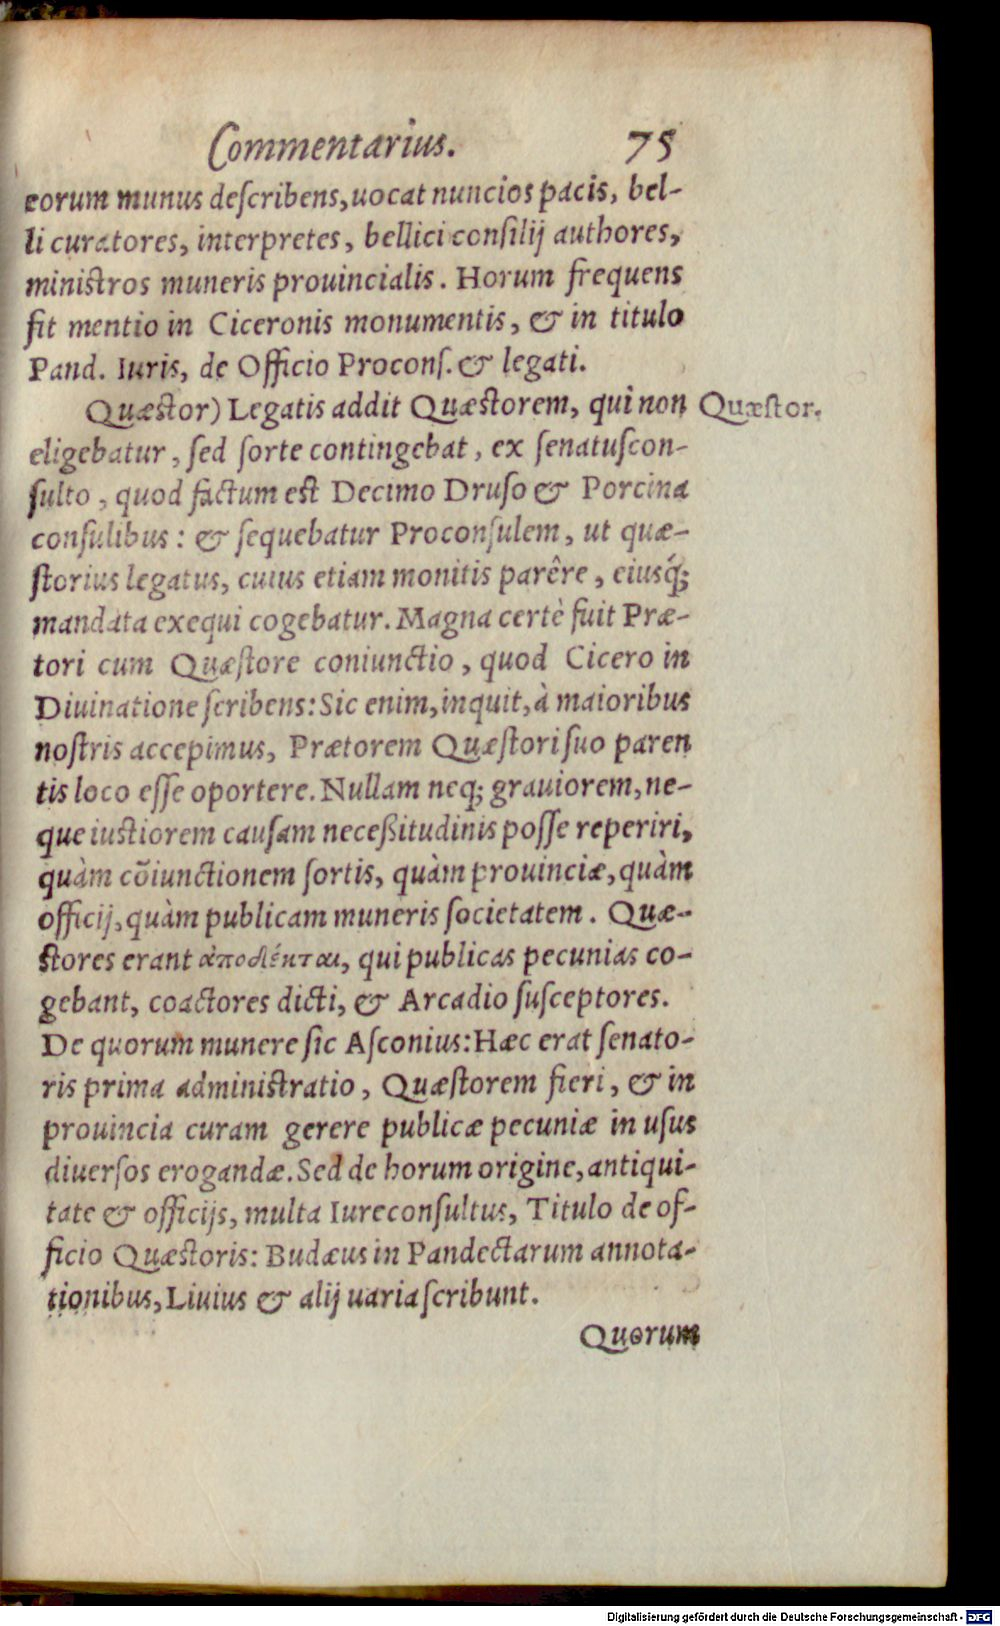 Commentarius. 75
eorum munus deſcribens, uocat nuncios pacis, bel-
li curatores, interpretes, bellici conſilij authores,
miniſtros muneris prouincialis. Horum frequens
fit mentio in Ciceronis monumentis, & in titulo
Pand. Iuris, de Officio Proconſ. & legati.
Quæſtor) Legatis addit Quæſtorem, qui non Quæſtor.
eligebatur, ſed ſorte contingebat, ex ſenatuſcon-
ſulto, quod factum eſt Decimo Druſo & Porcina
conſulibus: & ſequebatur Proconſulem, ut quæ-
ſtorius legatus, cuius etiam monitis parêre, eiusq́;
mandata exequi cogebatur. Magna certè fuit Præ-
tori cum Quæſtore coniunctio, quod Cicero in
Diuinatione ſcribens: Sic enim, inquit, à maioribus
noſtris accepimus, Prætorem Quæſtori ſuo paren
tis loco eſſe oportere. Nullam neq; grauiorem, ne-
que iuſtiorem cauſam neceßitudinis poſſe reperiri,
quàm cōiunctionem ſortis, quàm prouinciæ, quàm
officij, quàm publicam muneris ſocietatem. Quæ-
ſtores erant ἀποδέκται, qui publicas pecunias co-
gebant, coactores dicti, & Arcadio ſuſceptores.
De quorum munere ſic Aſconius: Hæc erat ſenato-
ris prima adminiſtratio, Quæſtorem fieri, & in
prouincia curam gerere publicæ pecuniæ in uſus
diuerſos erogandæ. Sed de horum origine, antiqui-
tate & officijs, multa Iureconſultus, Titulo de of-
ficio Quæſtoris: Budæus in Pandectarum annota-
tionibus, Liuius & alij uaria ſcribunt.
Quorum
Digitalisierung gefördert durch die Deutsche Forschungsgemeinschaft - DFG